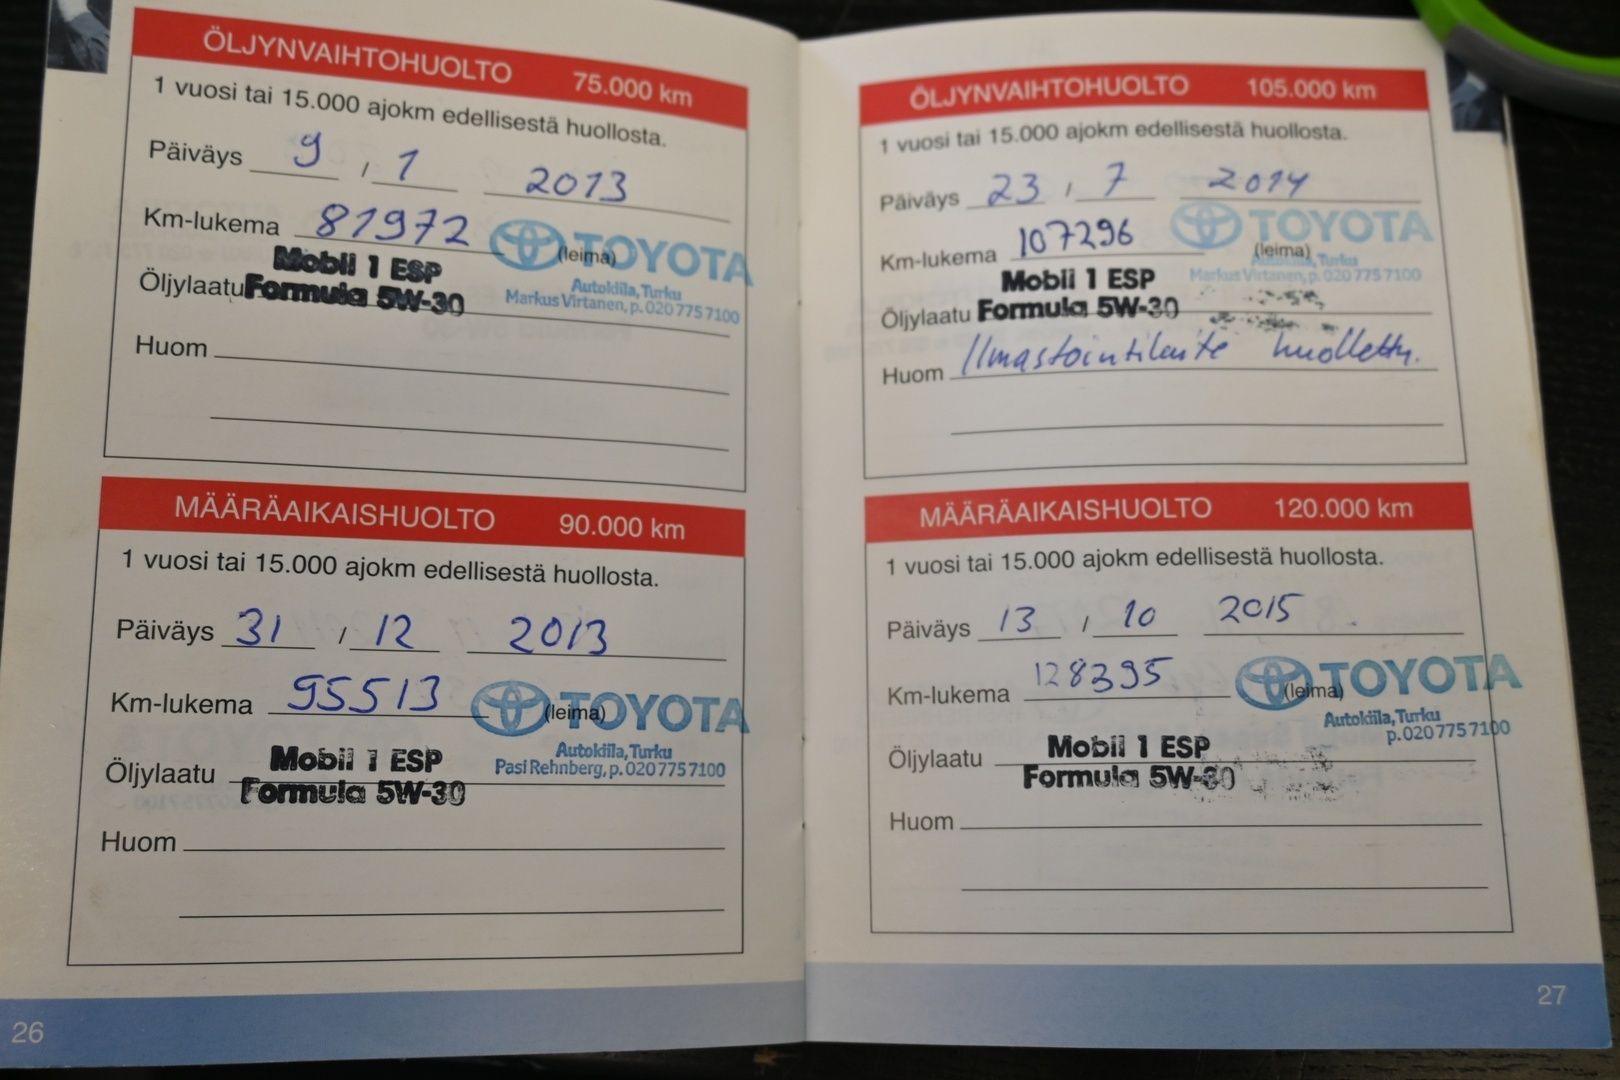 ÖLJYNVAIHTOHUOLTO 75.000 km
1 vuosi tai 15.000 ajokm edellisestä huollosta.
Päiväys 9 / 1 2013
Km-lukema 81972
TOYOTA
(leima)
Autokiila, Turku
Markus Virtanen, p. 020 775 7100
Öljylaatu Mobil 1 ESP
Formula 5W-30
Huom
MÄÄRÄAIKAISHUOLTO 90.000 km
1 vuosi tai 15.000 ajokm edellisestä huollosta.
Päiväys 31 / 12 2013
Km-lukema 95513
TOYOTA
(leima)
Autokiila, Turku
Pasi Rehnberg, p. 020 775 7100
Öljylaatu Mobil 1 ESP
Formula 5W-30
Huom
26
ÖLJYNVAIHTOHUOLTO 105.000 km
1 vuosi tai 15.000 ajokm edellisestä huollosta.
Päiväys 23 / 7 2014
Km-lukema 107296
TOYOTA
(leima)
Autokiila, Turku
Markus Virtanen, p. 020 775 7100
Öljylaatu Mobil 1 ESP
Formula 5W-30
Huom Ilmastointilaite huollettu.
MÄÄRÄAIKAISHUOLTO 120.000 km
1 vuosi tai 15.000 ajokm edellisestä huollosta.
Päiväys 13 / 10 2015
Km-lukema 128395
TOYOTA
(leima)
Autokiila, Turku
p. 020 775 7100
Öljylaatu Mobil 1 ESP
Formula 5W-30
Huom
27